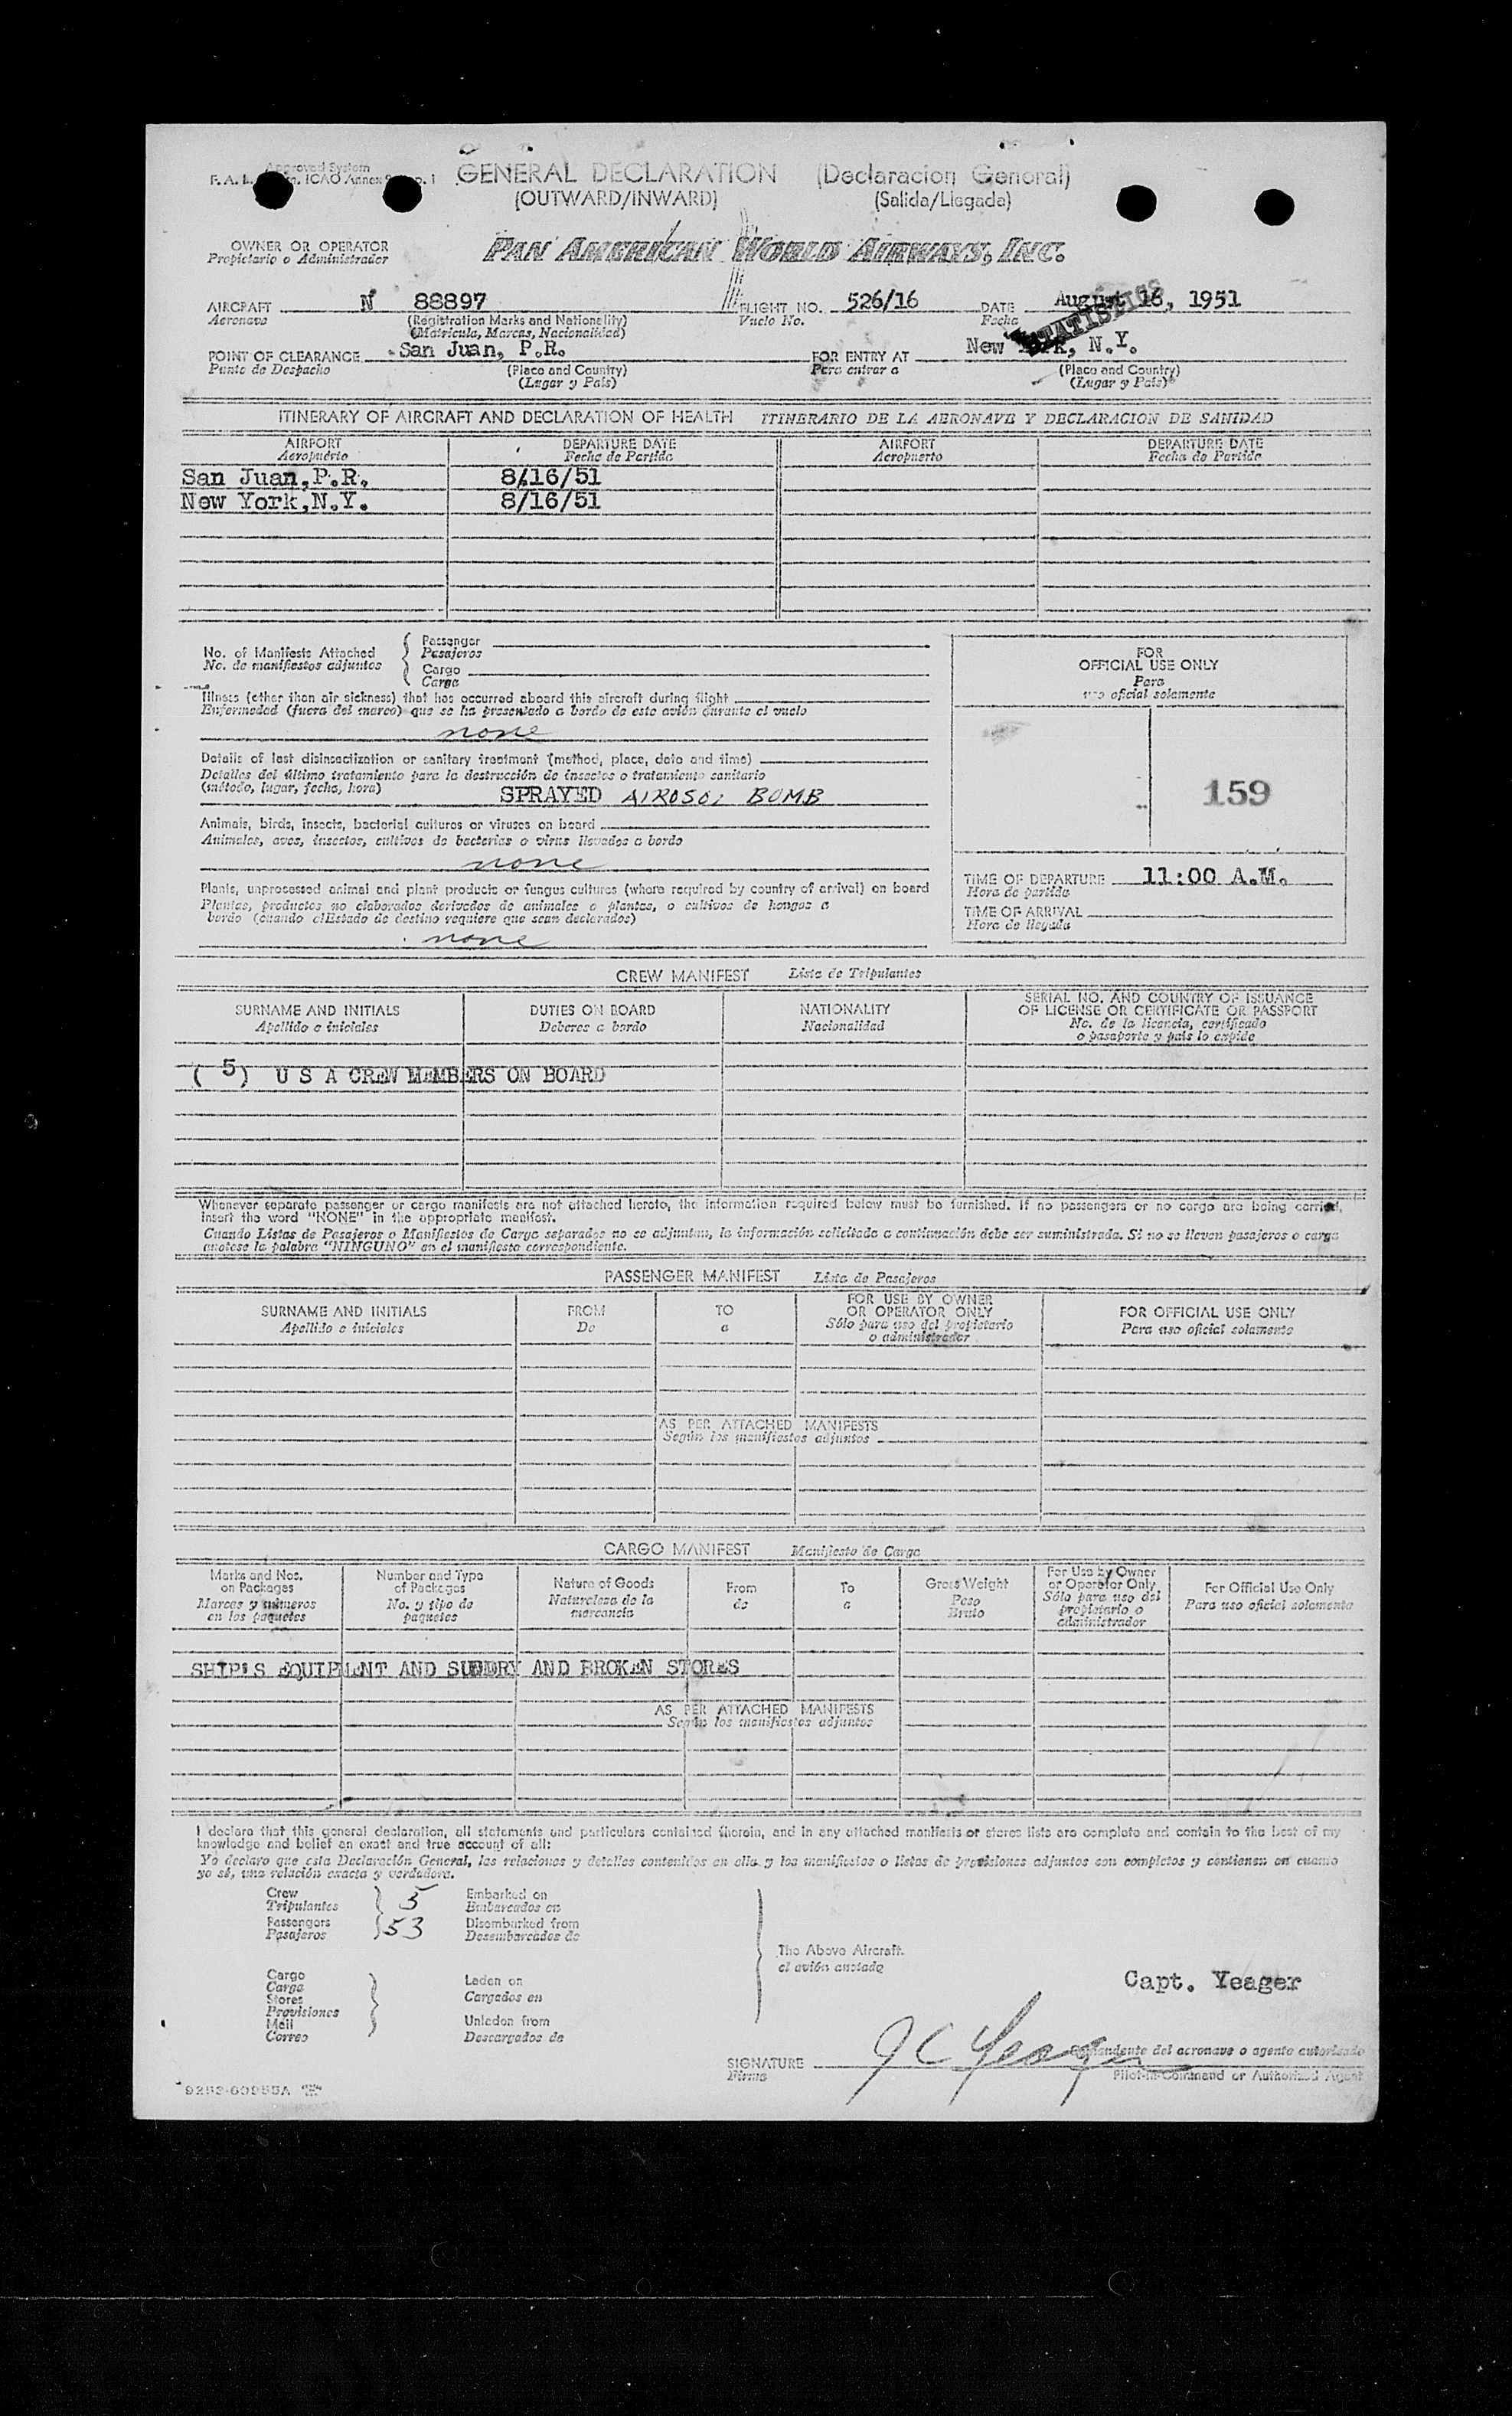 Approved System
F. A. L. ICAO Annex
GENERAL DECLARATION (Declaracion General)
(OUTWARD/INWARD) (Salida/Llegada)
OWNER OR OPERATOR
Propietario o Administrador
PAN AMERICAN WORLD AIRWAYS, INC.
AIRCRAFT N 88897 FLIGHT NO. 526/16 DATE August 16, 1951
Aeronave (Registration Marks and Nationality) Vuelo No. Fecha
(Matricula, Marcas, Nacionalidad)
STATISTICS
POINT OF CLEARANCE San Juan, P.R. FOR ENTRY AT New York, N.Y.
Punto de Despacho (Place and Country) Para entrar a (Place and Country)
(Lugar y País) (Lugar y País)
ITINERARY OF AIRCRAFT AND DECLARATION OF HEALTH ITINERARIO DE LA AERONAVE Y DECLARACION DE SANIDAD
AIRPORT DEPARTURE DATE AIRPORT DEPARTURE DATE
Aeropuerto Fecha de Partida Aeropuerto Fecha de Partida
San Juan,P.R. 8/16/51
New York,N.Y. 8/16/51
No. of Manifests Attached
No. de manifiestos adjuntos
Passenger
Pasajeros
Cargo
Carga
Illness (other than air sickness) that has occurred aboard this aircraft during flight
Enfermedad (fuera del mareo) que se ha presentado a bordo de este avión durante el vuelo
none
Details of last disinsectization or sanitary treatment (method, place, date and time)
Detalles del último tratamiento para la destrucción de insectos o tratamiento sanitario
(método, lugar, fecha, hora)
SPRAYED AIROSOL BOMB
Animals, birds, insects, bacterial cultures or viruses on board
Animales, aves, insectos, cultivos de bacterias o virus llevados a bordo
none
Plants, unprocessed animal and plant products or fungus cultures (where required by country of arrival) on board
Plantas, productos no elaborados derivados de animales o plantas, o cultivos de hongos a
bordo (cuando el Estado de destino requiere que sean declarados)
none
FOR
OFFICIAL USE ONLY
Para
uso oficial solamente
159
TIME OF DEPARTURE 11:00 A.M.
Hora de partida
TIME OF ARRIVAL
Hora de llegada
CREW MANIFEST Lista de Tripulantes
SURNAME AND INITIALS DUTIES ON BOARD NATIONALITY SERIAL NO. AND COUNTRY OF ISSUANCE
OF LICENSE OR CERTIFICATE OR PASSPORT
Apellido e iniciales Deberes a bordo Nacionalidad No. de la licencia, certificado
o pasaporte y país lo expide
( 5) U S A CREW MEMBERS ON BOARD
Whenever separate passenger or cargo manifests are not attached hereto, the information required below must be furnished. If no passengers or no cargo are being carried,
insert the word "NONE" in the appropriate manifest.
Cuando Listas de Pasajeros o Manifiestos de Carga separados no se adjuntan, la información solicitada a continuación debe ser suministrada. Si no se lleven pasajeros o carga
anotese la palabra "NINGUNO" en el manifiesto correspondiente.
PASSENGER MANIFEST Lista de Pasajeros
SURNAME AND INITIALS FROM TO FOR USE BY OWNER
OR OPERATOR ONLY FOR OFFICIAL USE ONLY
Apellido e iniciales De a Sólo para uso del propietario
o administrador Para uso oficial solamente
AS PER ATTACHED MANIFESTS
Según los manifiestos adjuntos
CARGO MANIFEST Manifiesto de Carga
Marks and Nos.
on Packages
Marcas y números
en los paquetes
Number and Type
of Packages
No. y tipo de
paquetes
Nature of Goods
Naturaleza de la
mercancía
From
de
To
a
Gross Weight
Peso
Bruto
For Use by Owner
or Operator Only
Sólo para uso del
propietario o
administrador
For Official Use Only
Para uso oficial solamente
SHIP'S EQUIPMENT AND SUNDRY AND BROKEN STORES
AS PER ATTACHED MANIFESTS
Según los manifiestos adjuntos
I declare that this general declaration, all statements and particulars contained therein, and in any attached manifests or stores lists are complete and contain to the best of my
knowledge and belief an exact and true account of all:
Yo declaro que esta Declaración General, las relaciones y detalles contenidos en ella y los manifiestos o listas de provisiones adjuntos son completos y contienen en cuanto
yo sé, una relación exacta y verdadera.
Crew
Tripulantes 5
Passengers
Pasajeros 53
Embarked on
Embarcados en
Disembarked from
Desembarcados de
Cargo
Carga
Stores
Provisiones
Mail
Correo
Laden on
Cargados en
Unladen from
Descargados de
The Above Aircraft.
el avión anotado
Capt. Yeager
SIGNATURE J C Yeager
Firma
Comandante del aeronave o agente autorizado
Pilot-in-Command or Authorized Agent